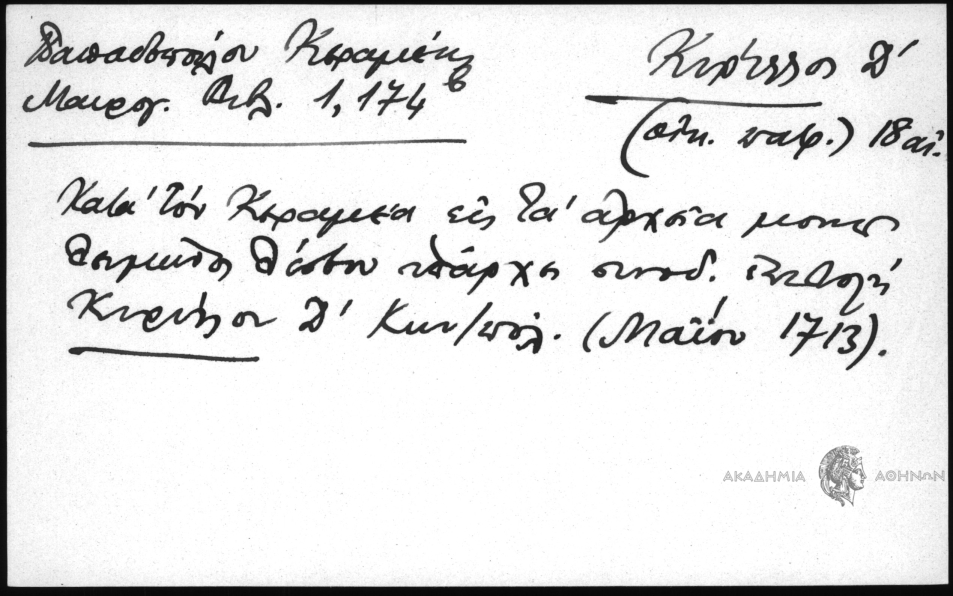 Παπαδοπούλου Κεραμέως
Μαυρογ. Βιβλ. 1, 174 β
Κύριλλος Δ'
(οἰκ. πατρ.) 18 αἰ.
Κατὰ τὸν Κεραμέα εἰς τὰ ἀρχεῖα μονῆς
Λειμῶνος Λέσβου ὑπάρχει συνοδ. ἐπιστολὴ
Κυρίλλου Δ' Κων/πόλ. (Μαΐου 1713).
ΑΚΑΔΗΜΙΑ ΑΘΗΝΩΝ